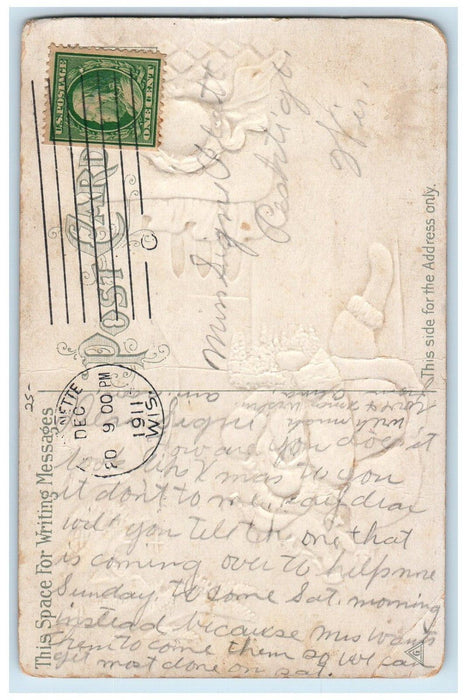 U.S. POSTAGE
ONE CENT
POST CARD
This side for the Address only.
This Space For Writing Messages
NETTE
DEC
20 9 00 PM
1911
WIS.
Miss Signe
Peshtigo
Wis.
25-
Signe
How are you does it
look like X mas to you
it don't to me, say dear
will you tell the one that
is coming over to help me
Sunday, to come Sat. morning
instead because Mrs wants
them to come then so we can
get most done on Sat.
with much
G